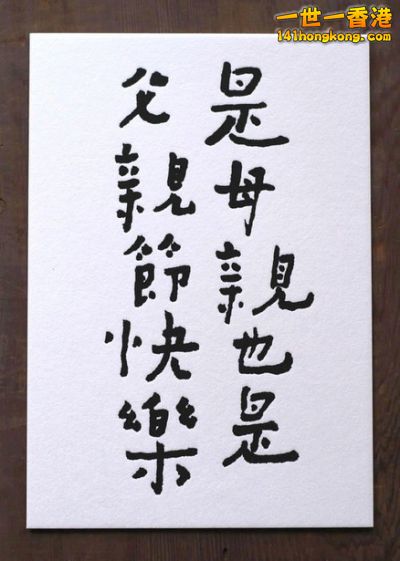 一世一香港
141hongkong.com
是母親也是
父親節快樂